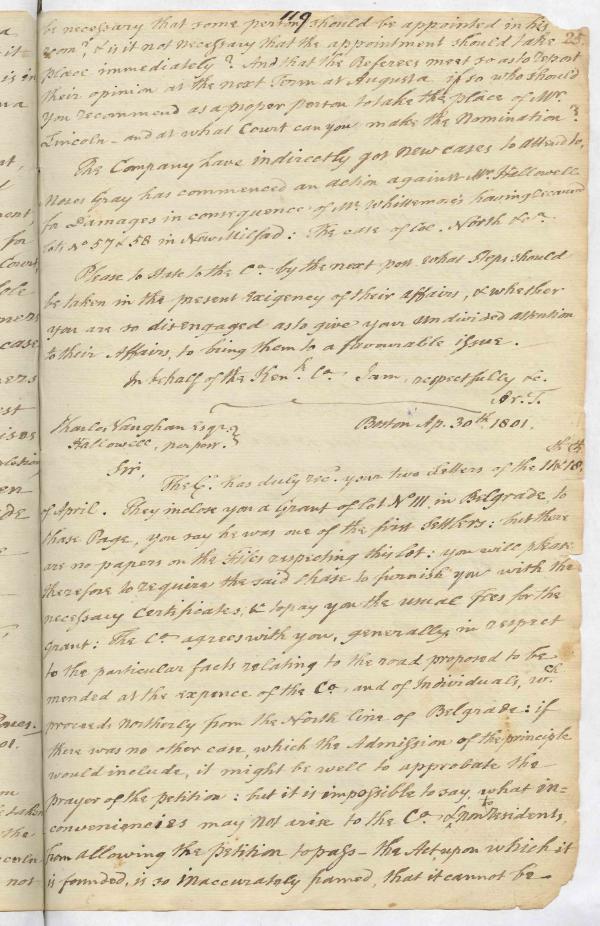 119
25
be necessary that some person should be appointed in his
room? & is it not necessary that the appointment should take
place immediately? And that the Referees meet so as to report
their opinion at the next Term at Augusta if so who should
you recommend as a proper person to take the place of Mr.
Lincoln - and at what Court can you make the Nomination?
The Company have indirectly got new cases to attend to,
Moses Gray has commenced an action against Mr. Hallowell
for Damages in consequence of Mr. Whittemore's having
lots No 57 & 58 in New Milford: The case of Col. North &ca.
Please to State to the Co. by the next post what steps should
be taken in the present exigency of their affairs, & whether
you are so disengaged as to give your undivided attention
to their Affairs, to bring them to a favourable issue.
In behalf of the Kenk. Co. I am, respectfully &c.
Ar. T.
Charles Vaughan Esqr.
Hallowell, per post.
Boston Ap. 30th. 1801.
Sir,
The Co. has duly recd. your two Letters of the 11th & 18th
of April. They inclose you a Grant of lot No 111 in Belgrade to
Chase Page, you say he was one of the first Settlers: but there
are no papers on the Files respecting this lot: you will please
therefore to require the said Chase to furnish you with the
necessary Certificates, & to pay you the usual Fees for the
grant: The Co. agrees with you, generally, in respect
to the particular facts relating to the road proposed to be
mended at the expence of the Co. and of Individuals, wch.
proceeds Northerly from the North line of Belgrade: if
there was no other case, which the Admission of the principle
would include, it might be well to approbate the
prayer of the petition: but it is impossible to say, what in=
conveniencies may not arise to the Co. & to Non Residents,
from allowing the petition to pass - the Act upon which it
is founded, is so inaccurately framed, that it cannot be